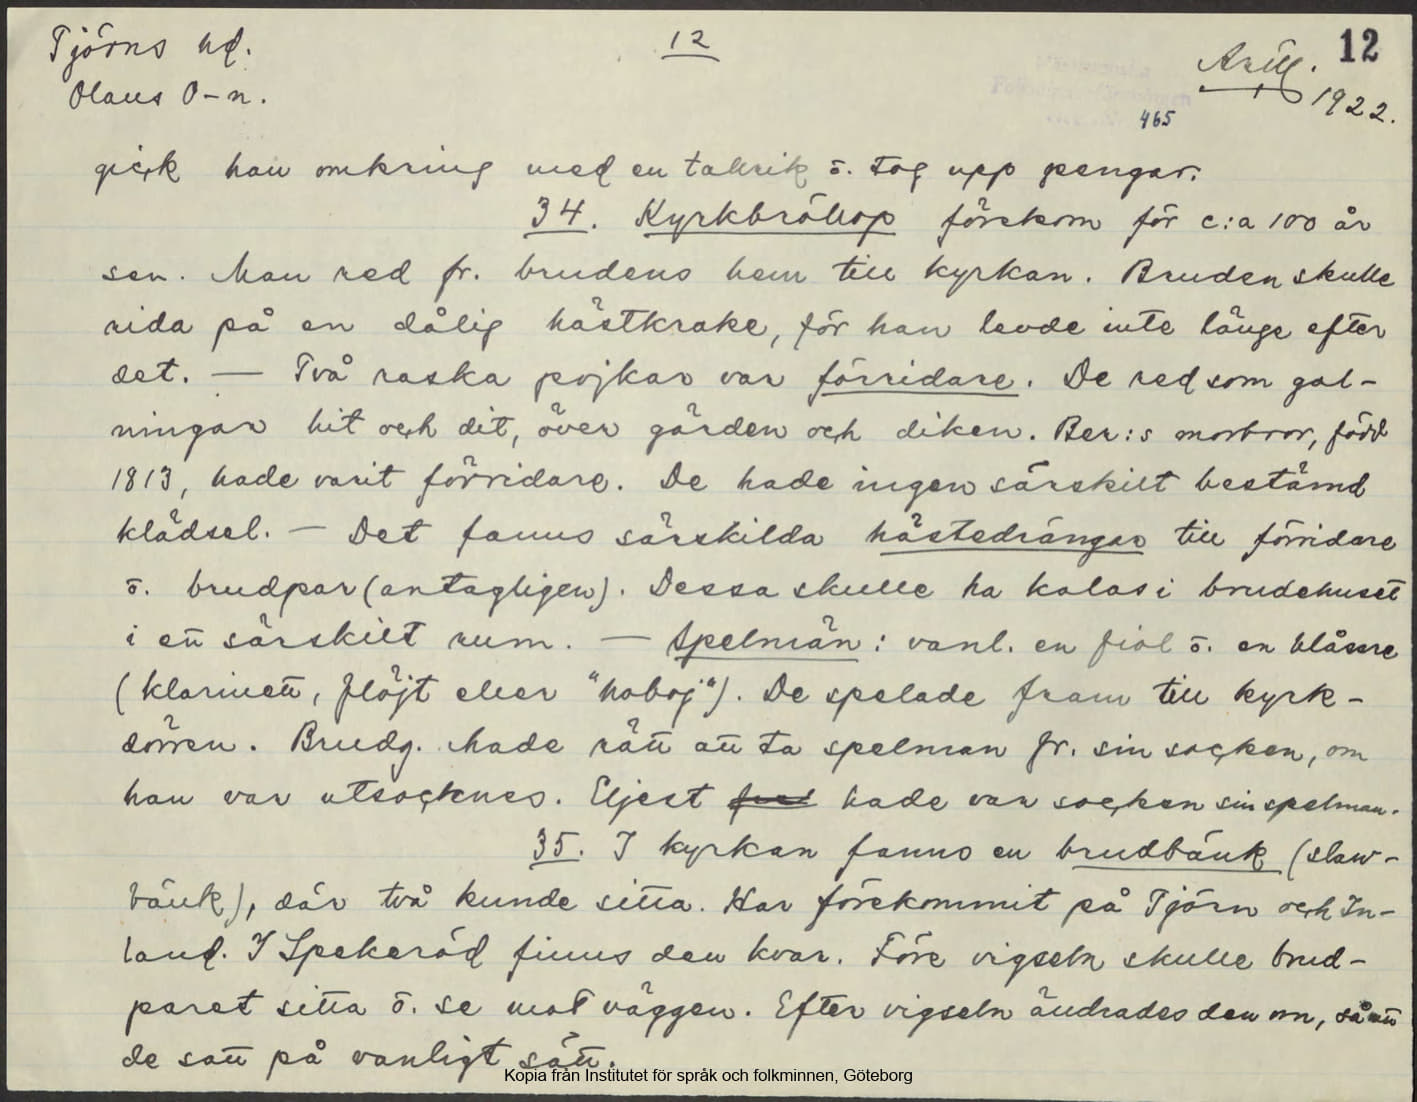 Tjörns hd.
12
12
Olaus O-n.
1922.
465
gick han omkring med en tallrik o. tog upp pengar.
34. Kyrkbröllop förekom för c:a 100 år
sen. Man red fr. brudens hem till kyrkan. Bruden skulle
rida på en dålig hästkrake, för han levde inte länge efter
det. — Två raska pojkar var förridare. De red som gal-
ningar hit och dit, över gärden och diken. Ber:s morbror, född
1813, hade varit förridare. De hade ingen särskilt bestämd
klädsel. — Det fanns särskilda hästedrängar till förridare
o. brudpar (antagligen). Dessa skulle ha kalas i brudehuset
i ett särskilt rum. — Spelmän: vanl. en fiol o. en blåsare
(klarinett, flöjt eller "hoboj"). De spelade fram till kyrk-
dörren. Brudg. hade rätt att ta spelman fr. sin socken, om
han var utsocknes. Eljest hade var socken sin spelman.
35. I kyrkan fanns en brudbänk (slaw-
bänk), där två kunde sitta. Har förekommit på Tjörn och In-
land. I Spekeröd finns den kvar. Före vigseln skulle brud-
paret sitta o. se mot väggen. Efter vigseln ändrades den om, så att
de satt på vanligt sätt.
Kopia från Institutet för språk och folkminnen, Göteborg